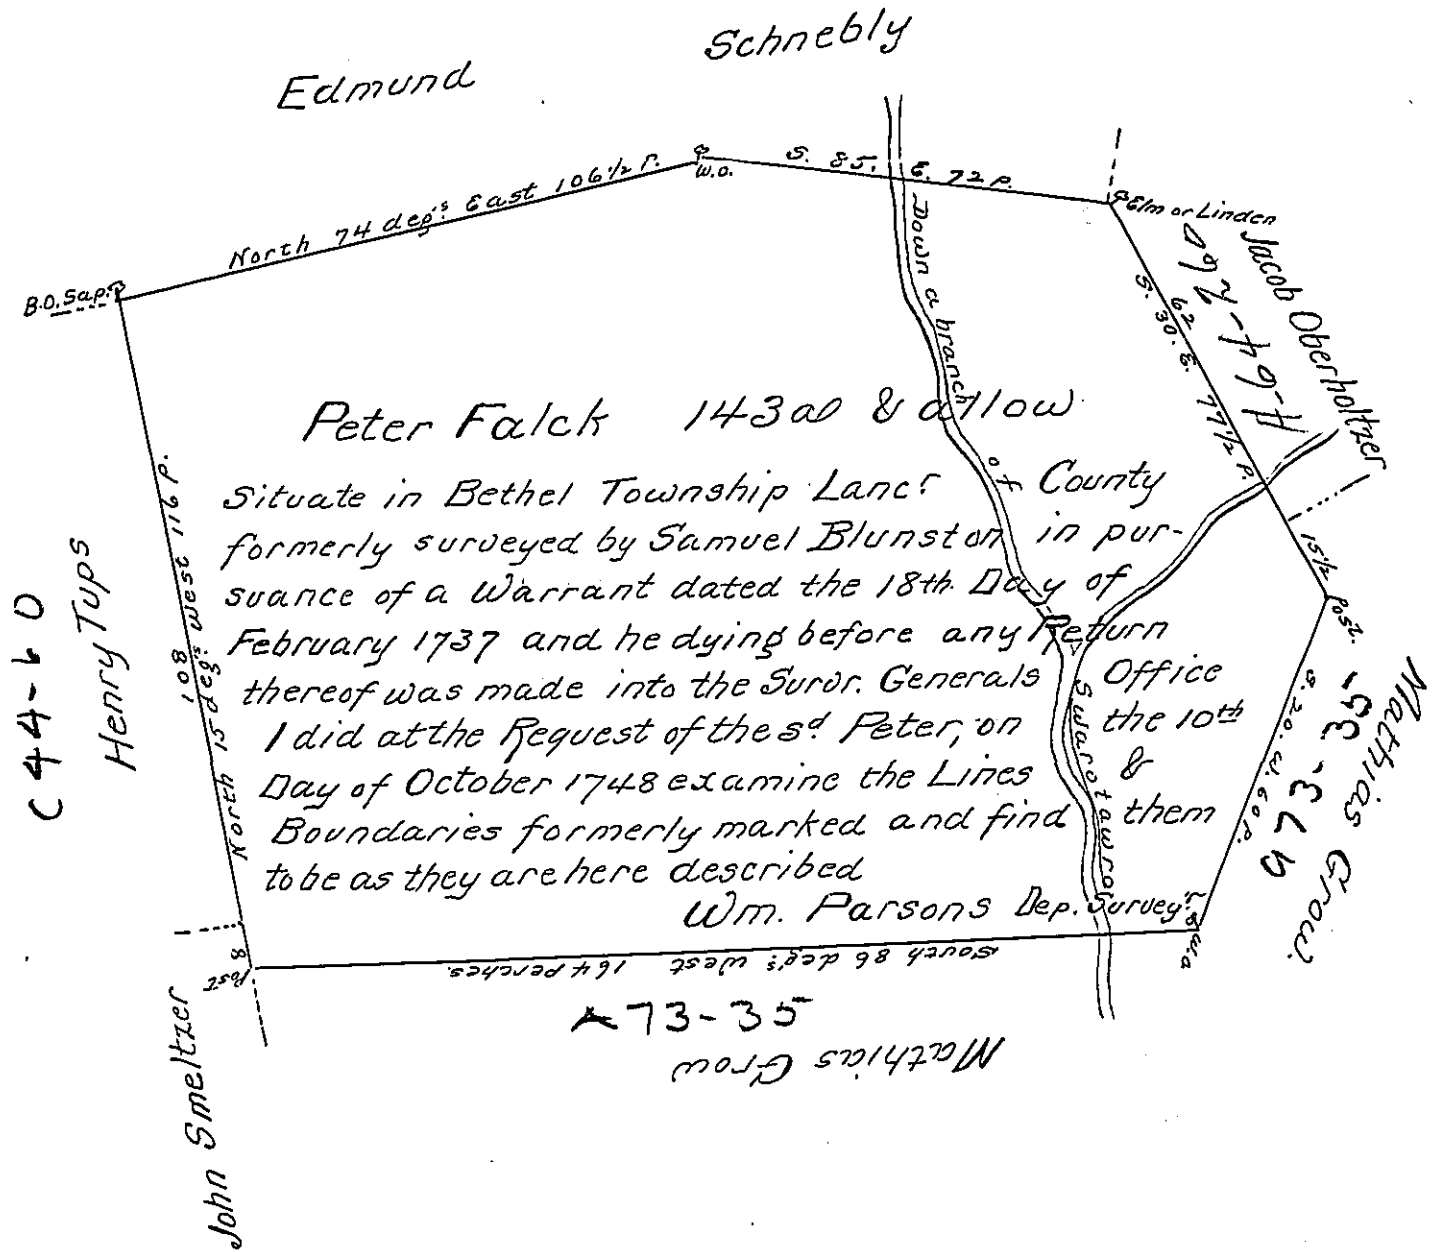 Edmund Schnebly
North 74 deg's East 106 1/2 P.
W.O.
S. 85. E. 72 P.
Elm or Linden
B.O. Sap.
Down a branch of Swarotawro
Jacob Oberholtzer
A64-260
62
S. 30. E. 77 1/2 P.
15 1/2
Post.
Peter Falck 143a & allow
Situate in Bethel Township Lancr County
formerly surveyed by Samuel Blunston in pur-
suance of a Warrant dated the 18th Day of
February 1737 and he dying before any Return
thereof was made into the Survr. Generals Office
I did at the Request of the sd Peter, on the 10th
Day of October 1748 examine the Lines &
Boundaries formerly marked and find them
to be as they are here described
Wm. Parsons Dep. Survey.r
North 15 deg's West 116 P.
108
8
Post
Henry Tups
C44-60
John Smeltzer
South 86 deg's West 164 perches
A73-35
Mathias Grow
S. 20. W. 60 P.
Matthias Grow.
A73-35